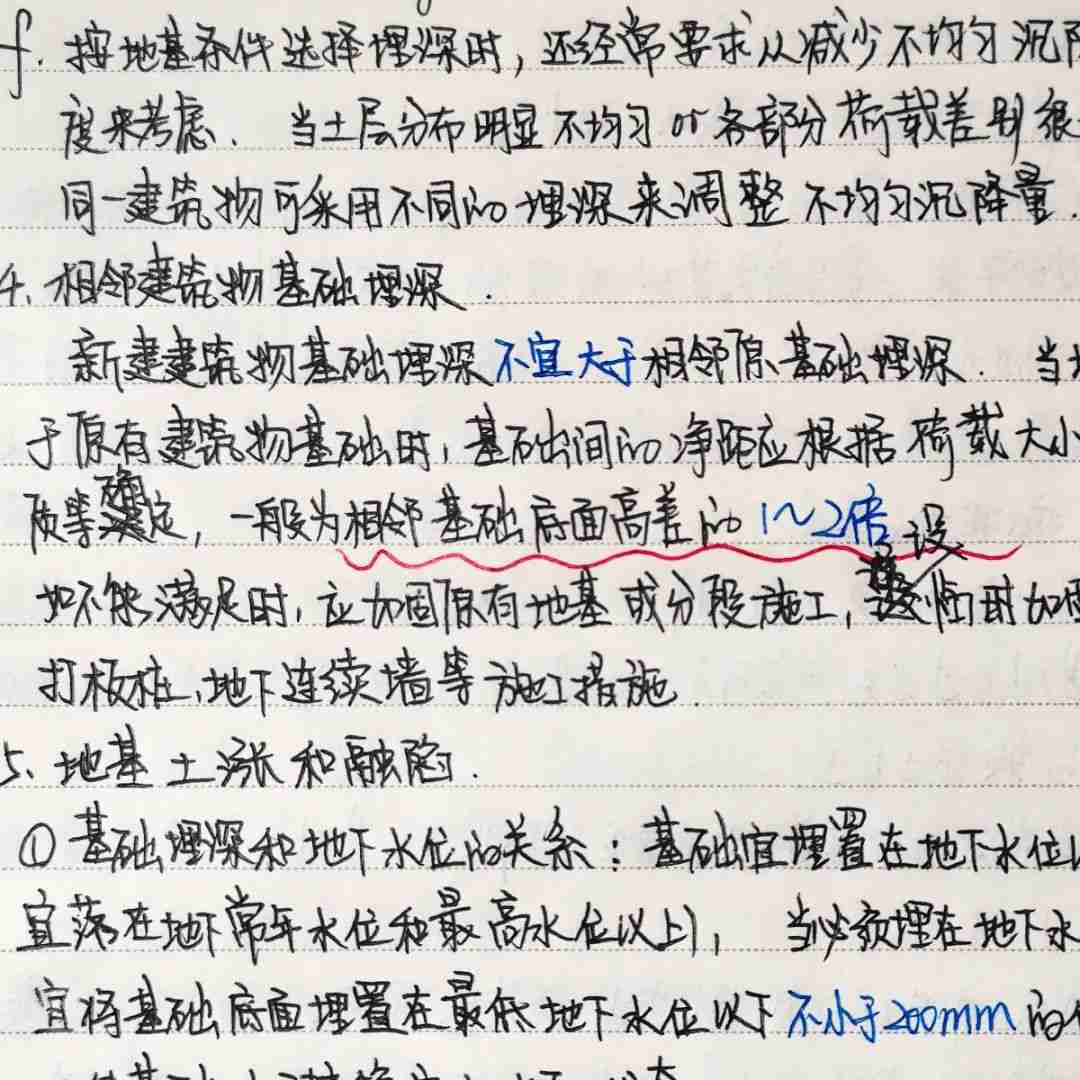 f. 按地基条件选择埋深时，还经常要求从减少不均匀沉降
度来考虑. 当土层分布明显不均匀or各部分荷载差别很
同一建筑物可采用不同的埋深来调整不均匀沉降量.
4. 相邻建筑物基础埋深.
新建建筑物基础埋深不宜大于相邻原基础埋深. 当
于原有建筑物基础时，基础间的净距应根据荷载大小
质等确定，一般为相邻基础底面高差的1~2倍
设
如不能满足时，应加固原有地基或分段施工，临时加固
打板桩、地下连续墙等施工措施.
5. 地基土涨和融陷.
① 基础埋深和地下水位的关系：基础宜埋置在地下水位以
宜落在地下常年水位和最高水位以上)， 当必须埋在地下水
宜将基础底面埋置在最低地下水位以下不小于200mm的